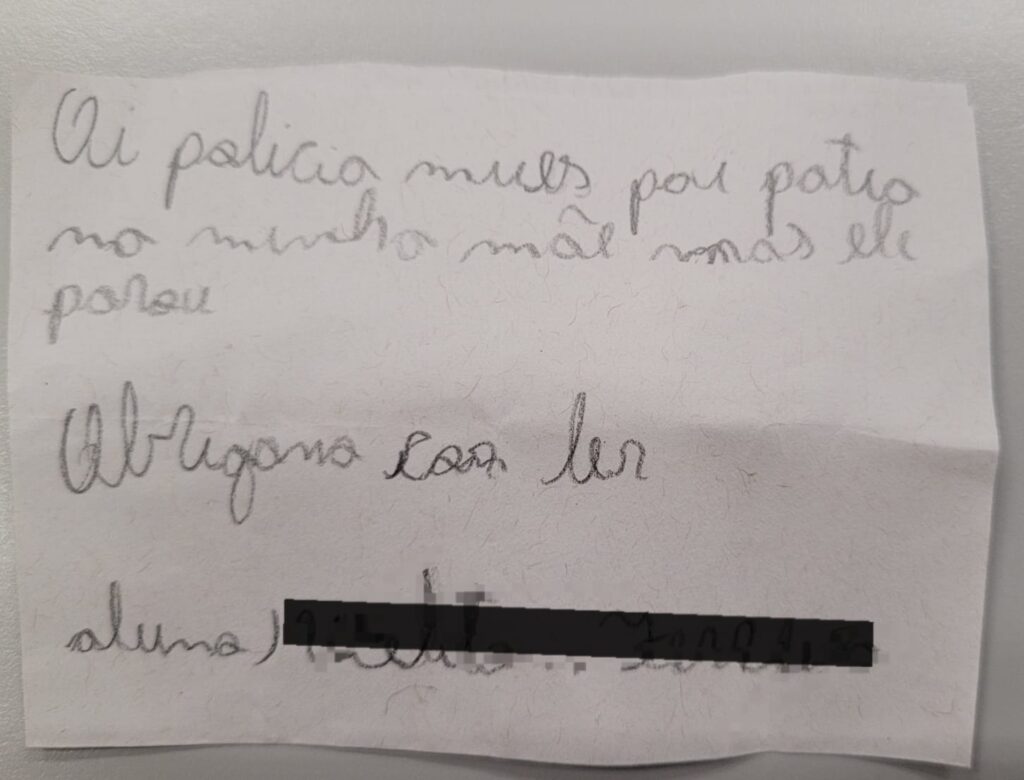 Oi policia meus pai patia
na minha mãe mas ele
parou
Obrigana com ler
aluna)